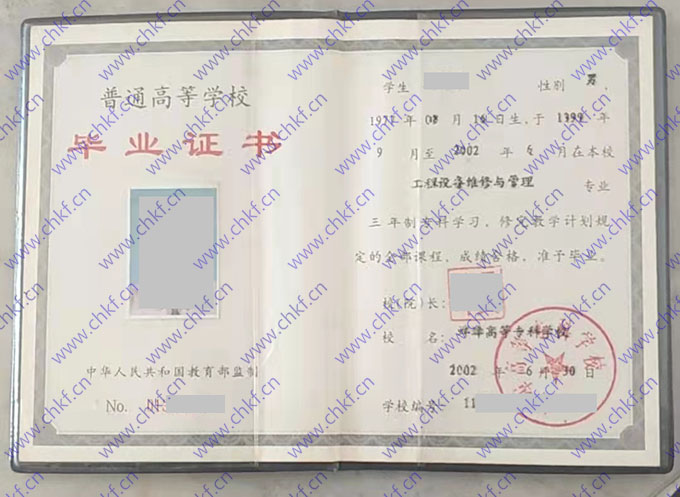 普通高等学校
毕业证书
中华人民共和国教育部监制
No.
学生 性别 男,
月 日生,于 1999 年
9 月至 2002 年 6 月在本校
工程设备维修与管理 专业
三 年制专科学习,修完教学计划规
定的全部课程,成绩合格,准予毕业。
校(院)长:
校 名: 高等专科学校
2002 年 6 月 30 日
学校编号: 11
www.chkf.cn